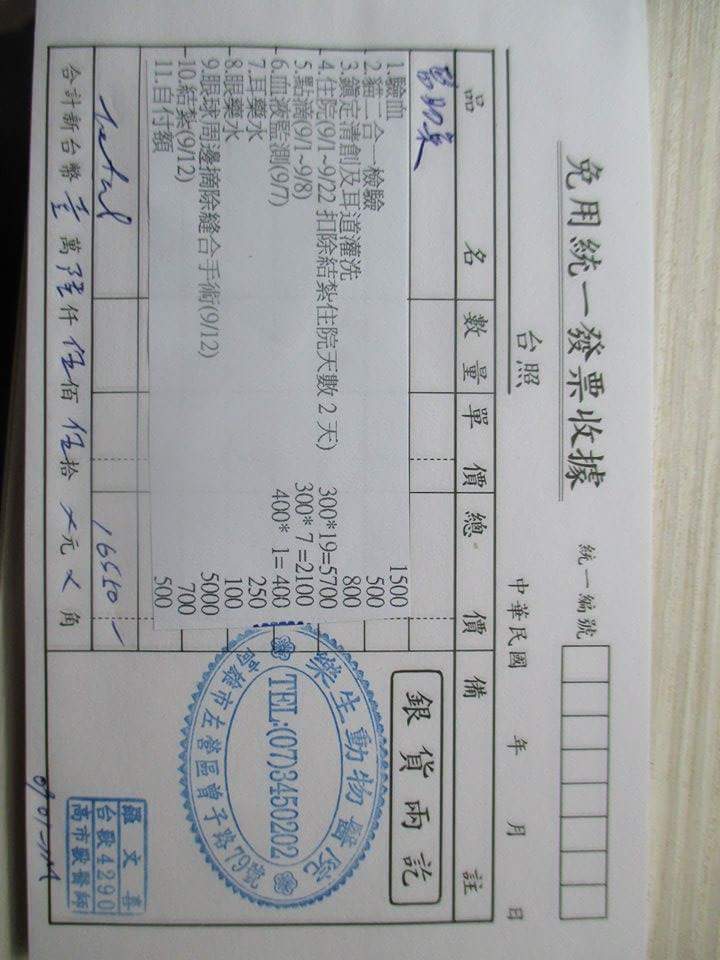 免用統一發票收據
統一編號
台照
中華民國 年 月 日
品名 數量 單價 總價 備註
1.驗血 1500
2.貓二合一檢驗 500
3.鎮定清創及耳道灌洗 800
4.住院(9/1~9/22 扣除結紮住院天數 2 天) 300*19=5700
5.點滴(9/1~9/8) 300* 7 =2100
6.血液監測(9/7) 400* 1= 400
7.耳藥水 250
8.眼藥水 100
9.眼球周邊摘除縫合手術(9/12) 5000
10.結紮(9/12) 700
11.自付額 500
total 16550
合計新台幣 壹 萬 陸 仟 伍 佰 伍 拾 × 元 × 角
銀貨兩訖
樂生動物醫院
TEL:(07)3450202
高雄市左營區曾子路79號
羅文喜
台獸4290
高市獸醫師